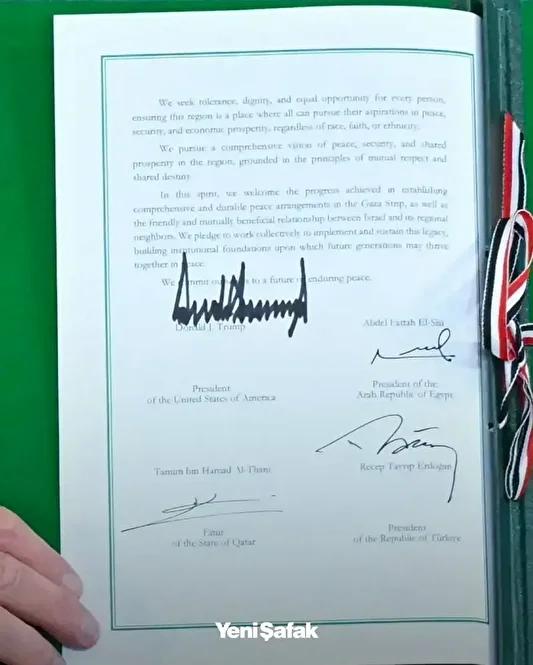 We seek tolerance, dignity, and equal opportunity for every person,
ensuring this region is a place where all can pursue their aspirations in peace,
security, and economic prosperity, regardless of race, faith, or ethnicity.
We pursue a comprehensive vision of peace, security, and shared
prosperity in the region, grounded in the principles of mutual respect and
shared destiny.
In this spirit, we welcome the progress achieved in establishing
comprehensive and durable peace arrangements in the Gaza Strip, as well as
the friendly and mutually beneficial relationship between Israel and its regional
neighbors. We pledge to work collectively to implement and sustain this legacy,
building institutional foundations upon which future generations may thrive
together in peace.
We commit ourselves to a future of enduring peace.
Donald J. Trump
Abdel Fattah El-Sisi
President
of the United States of America
President of the
Arab Republic of Egypt
Tamim bin Hamad Al-Thani
Recep Tayyip Erdoğan
Emir
of the State of Qatar
President
of the Republic of Türkiye
YeniŞafak